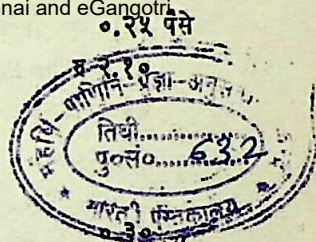 nai and eGangotri
०.२५ पैसे
प्र-२.१०
महर्षि-पाणिनि-प्रज्ञा-अनुस
तिथी..........
पु०सं०.... 632
भारती पुस्तकालय
०.३०